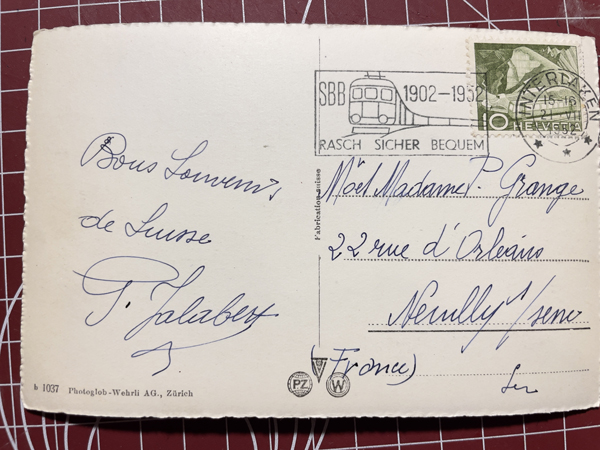 SBB 1902-1952
RASCH SICHER BEQUEM
10 HELVETIA
INTERLAKEN
1952
Bons Souvenirs
de Suisse
P. Jalabert
Fabrication suisse
M et Madame P. Grange
22 rue d'Orléans
Neuilly s/seine
(France)
b 1037 Photoglob-Wehrli AG., Zürich
PZ W